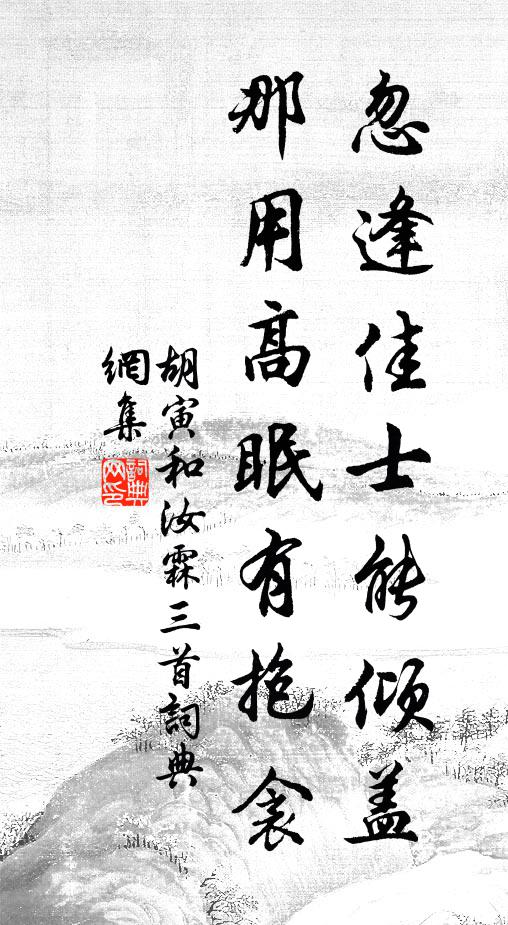 忽逢佳士能倾盖
那用高眠有抱衾
胡寅和汝霖三首詞典
網集
詞典网印